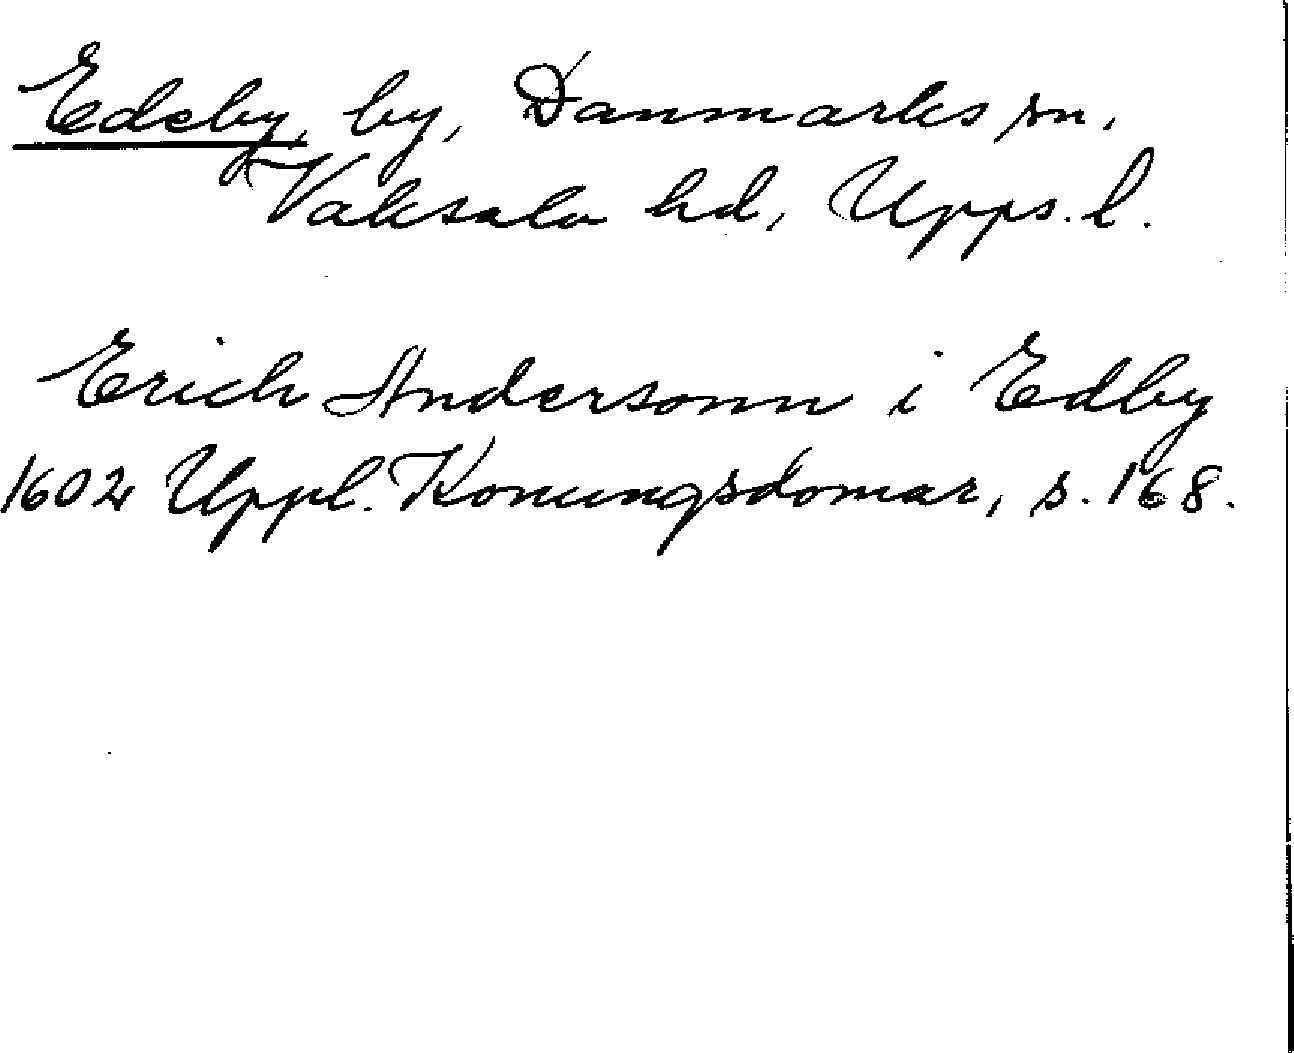 Edeby, by, Danmarks sn.
Vaksala hd, Upps. l.
Erich Andersonn i Edby
1602 Uppl. Konungsdomar, s. 168.